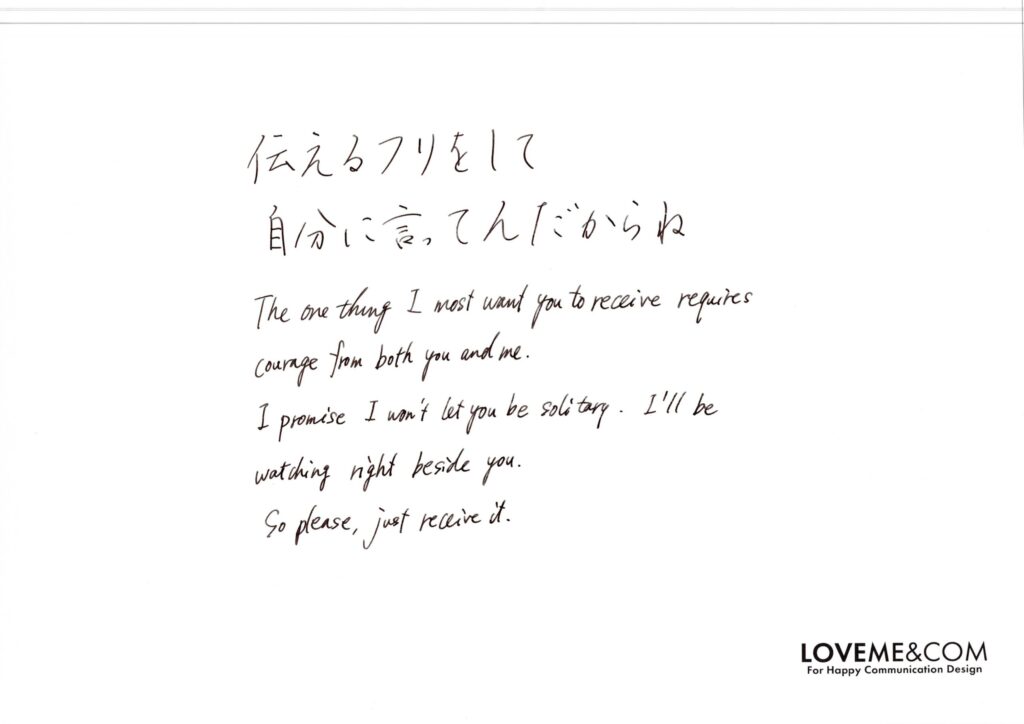 伝えるフリをして
自分に言ってんだからね
The one thing I most want you to receive requires
courage from both you and me.
I promise I won't let you be solitary. I'll be
watching right beside you.
So please, just receive it.
LOVEME&COM
For Happy Communication Design